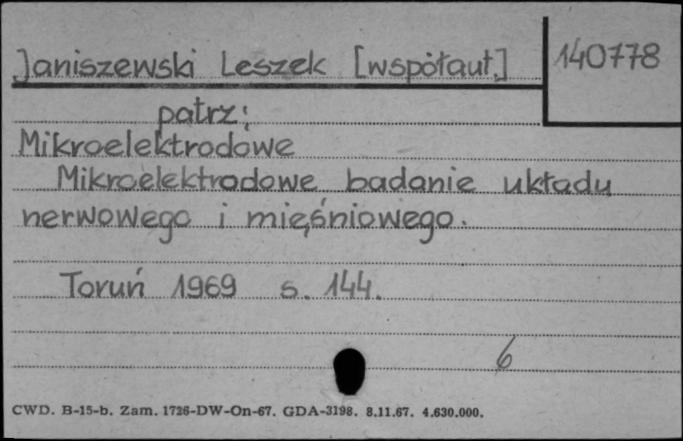 Janiszewski Leszek [współaut] 140778
patrz:
Mikroelektrodowe
Mikroelektrodowe badanie układu
nerwowego i mięśniowego.
Toruń 1969 s. 144.
6
CWD. B-15-b. Zam. 1726-DW-On-67. GDA-3198. 8.11.67. 4.630.000.